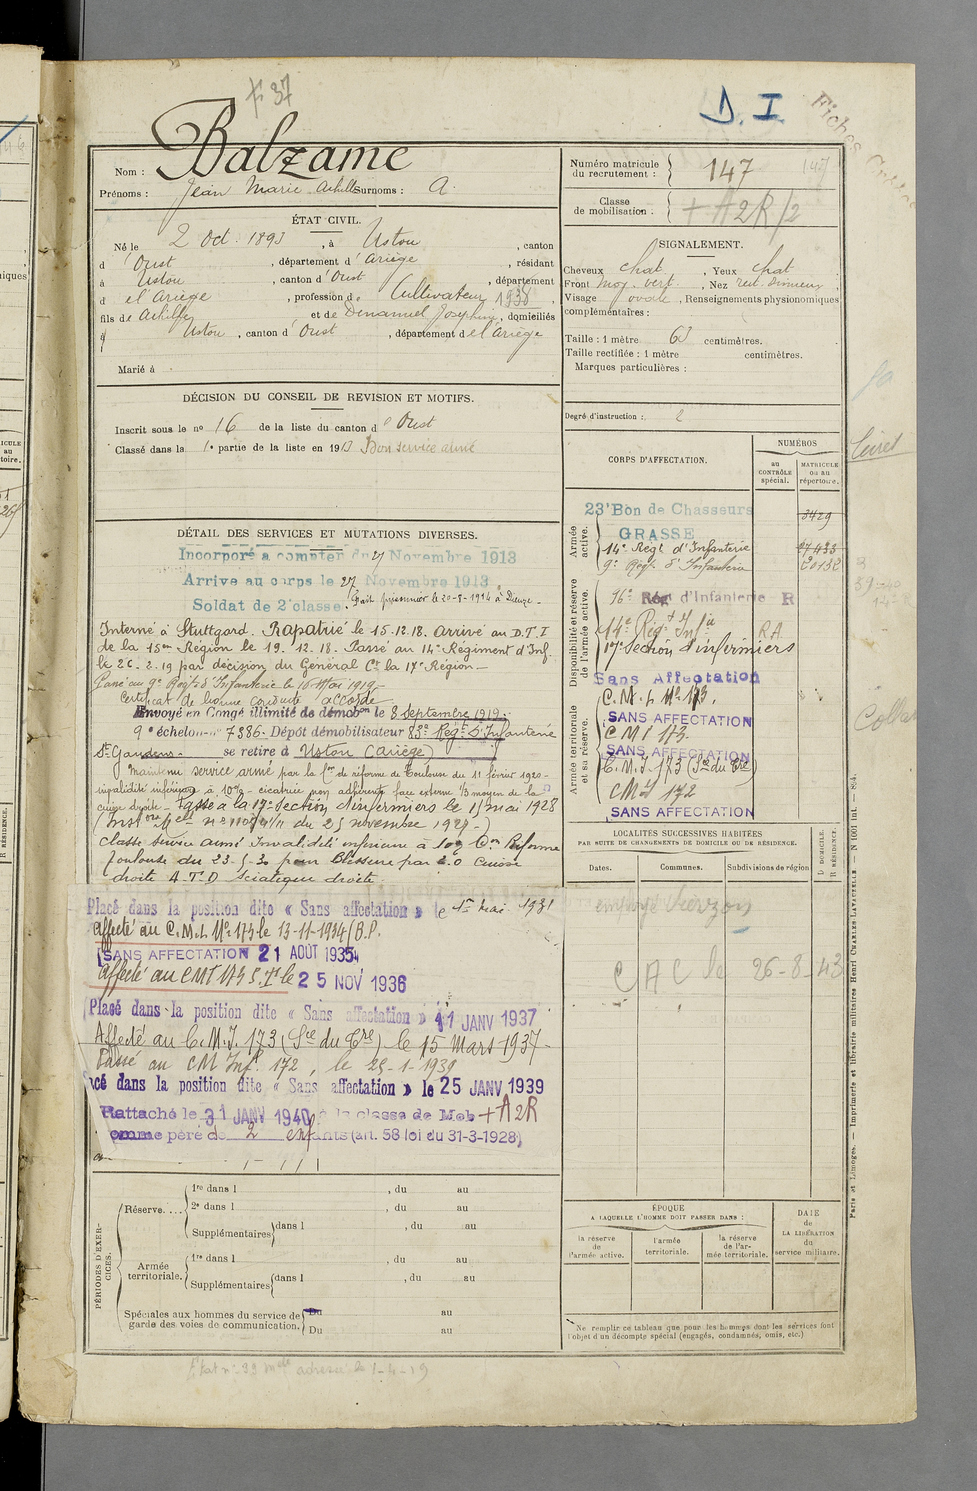 F. 37
D. I.
Fiche
Nom : Balzame
Prénoms : Jean Marie Achille Surnoms : A.
Numéro matricule du recrutement : 147
147
Classe de mobilisation : + A2R/2
ÉTAT CIVIL.
Né le 2 Oct. 1893, à Ustou, canton
d'Oust, département d'Ariège, résidant
à Ustou, canton d'Oust, département
d el'Ariège, profession de Cultivateur 1938,
fils de Achille et de Denamiel Joséphine, domiciliés
à Ustou, canton d'Oust, département de l'Ariège
Marié à
SIGNALEMENT.
Cheveux chat., Yeux chat
Front moy. vert., Nez rect.
Visage ovale, Renseignements physionomiques
complémentaires :
Taille : 1 mètre 63 centimètres.
Taille rectifiée : 1 mètre centimètres.
Marques particulières :
Degré d'instruction : 2
DÉCISION DU CONSEIL DE REVISION ET MOTIFS.
Inscrit sous le no 16 de la liste du canton d'Oust
Classé dans la 1e partie de la liste en 1913 Bon service armé
DÉTAIL DES SERVICES ET MUTATIONS DIVERSES.
Incorporé à compter du 27 Novembre 1913
Arrivé au corps le 27 Novembre 1913.
Soldat de 2e classe. Fait prisonnier le 20-8-1914 à Dieuze.-
Interné à Stuttgard. Rapatrié le 15.12.18. arrivé au D.T.I
de la 15em Région le 19.12.18. Passé au 14e Régiment d'Inf.
le 26.2.19 par décision du Général Ct la 17e Région -
Passé au 9e Regt d'Infanterie le 16 Mai 1919 -
Certificat de bonne conduite accordé
Envoyé en Congé illimité de démobon le 8 septembre 1919.
9e échelon - no 7386. Dépôt démobilisateur 83e Régt d'Infanterie
St Gaudens. se retire à Ustou (Ariège)
Maintenu service armé par la Con de réforme de Toulouse du 11 février 1920 -
invalidité inférieure à 10% - cicatrice non adhérente face externe 1/3 moyen de la
cuisse droite - Passé à la 17e Section d'infirmiers le 1er mai 1928
du 25 novembre 1927 -)
Classé service armé Invalidité inférieure à 10% Con Réforme
Toulouse du 23-5-30 pour Blessure par E.O Cuisse
droite A.T.D Sciatique droite
Placé dans la position dite « Sans affectation » le 1er Mai 1931
affecté au C.M.I. No 173 le 13-11-1934 / B.P.
SANS AFFECTATION 21 AOUT 1935
Affecté au CMI 173 le 25 NOV 1936
Placé dans la position dite « Sans affectation » 11 JANV 1937
Affecté au C.M.I. 173 (Sce du Tre) le 15 Mars 1937 -
Passé au CM Inf. 172, le 25-1-1939
acé dans la position dite « Sans affectation » le 25 JANV 1939
Rattaché le 31 JANV 1940 à la classe de Mob +A2R
omme père de 2 enfants (art. 58 loi du 31-3-1928)
CORPS D'AFFECTATION.
NUMÉROS
au CONTRÔLE spécial.
MATRICULE ou au répertoire.
Armée active.
23e Bon de Chasseurs 3429
GRASSE
14e Régt d'Infanterie
9e Régt d'Infanterie 20132
Disponibilité et réserve de l'armée active.
96e Rég d'Infanterie R
14e Régt Infie R.A.
17e Section d'infirmiers
Sans Affectation
Armée territoriale et sa réserve.
C.M.I. No 173.
SANS AFFECTATION
CMI 173.
SANS AFFECTATION
C.M.I. 173 (Sce du Tre)
CMI 172
SANS AFFECTATION
LOCALITÉS SUCCESSIVES HABITÉES
PAR SUITE DE CHANGEMENTS DE DOMICILE OU DE RÉSIDENCE.
Dates. Communes. Subdivisions de région
D DOMICILE. R RÉSIDENCE.
employé Vierzon
C A C le 26-8-43
PÉRIODES D'EXERCICES.
Réserve....
1re dans l , du au
2e dans l , du au
Supplémentaires dans l , du au
Armée territoriale.
1re dans l , du au
Supplémentaires dans l , du au
Spéciales aux hommes du service de garde des voies de communication.
Du au
Du au
ÉPOQUE
A LAQUELLE L'HOMME DOIT PASSER DANS :
la réserve de l'armée active.
l'armée territoriale.
la réserve de l'armée territoriale.
DATE de LA LIBÉRATION du service militaire.
Ne remplir ce tableau que pour les hommes dont les services font
l'objet d'un décompte spécial (engagés, condamnés, omis, etc.)
Paris et Limoges. — Imprimerie et librairie militaires Henri CHARLES-LAVAUZELLE
État no 99 adressé le 1-4-19